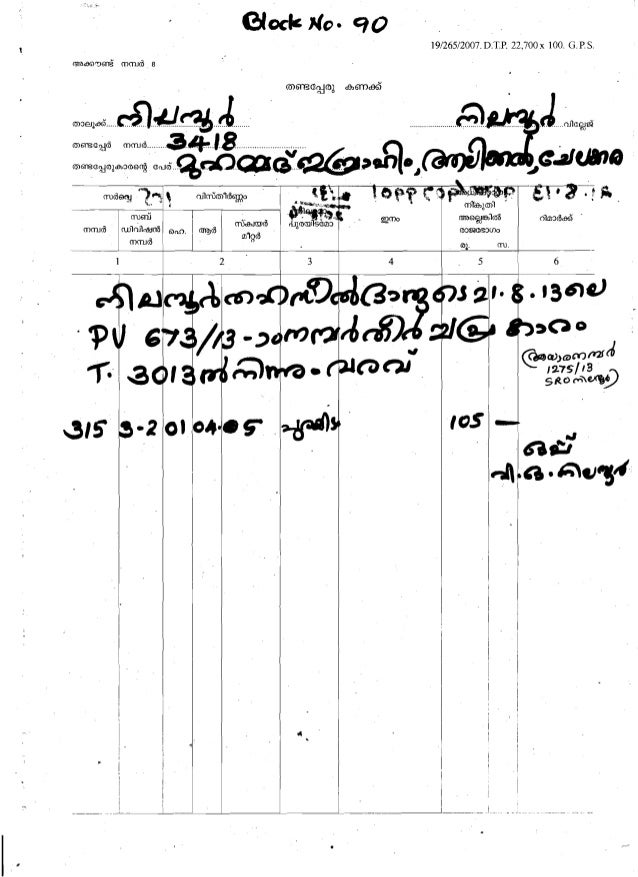 Block No. 90
19/265/2007. D.T.P. 22,700 x 100. G. P. S.
അക്കൗണ്ട് നമ്പർ 8
തണ്ടപ്പേരു കണക്ക്
താലൂക്ക് നിലമ്പൂർ നിലമ്പൂർ വില്ലേജ്
തണ്ടപ്പേർ നമ്പർ 3418
തണ്ടപ്പേരുകാരന്റെ പേര് മുഹമ്മദ് ഇബ്രാഹിം,
സർവ്വെ വിസ്തീർണ്ണം
നമ്പർ സബ് ഡിവിഷൻ നമ്പർ ഹെ. ആർ സ്ക്വയർ മീറ്റർ പുരയിടമോ ഇനം നികുതി അല്ലെങ്കിൽ രാജഭോഗം രൂ. സ. റിമാർക്ക്
1 2 3 4 5 6
നിലമ്പൂർ തഹസീൽദാരുടെ 21.8.13 ലെ
PV 673/13-ാം നമ്പർ തീർച്ച പ്രകാരം
T. 3013 ൽ നിന്നും വരവ്
(ആധാരനമ്പർ
1275/13
SRO നിലമ്പൂർ)
315 3-2 01 04.05 പുരയിടം 105 —
ഒപ്പ്
വി.ഒ. നിലമ്പൂർ